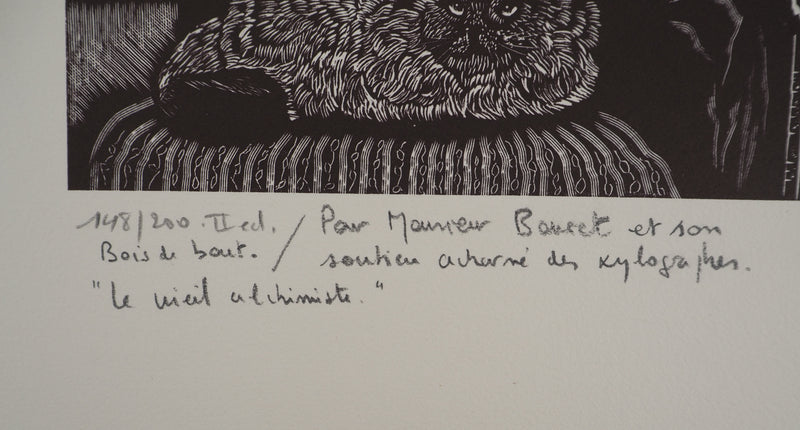 148/200. II ed. / Pour Monsieur Boucet et son
Bois de bout. / soutien acharné des xylographes.
"Le vieil alchimiste."